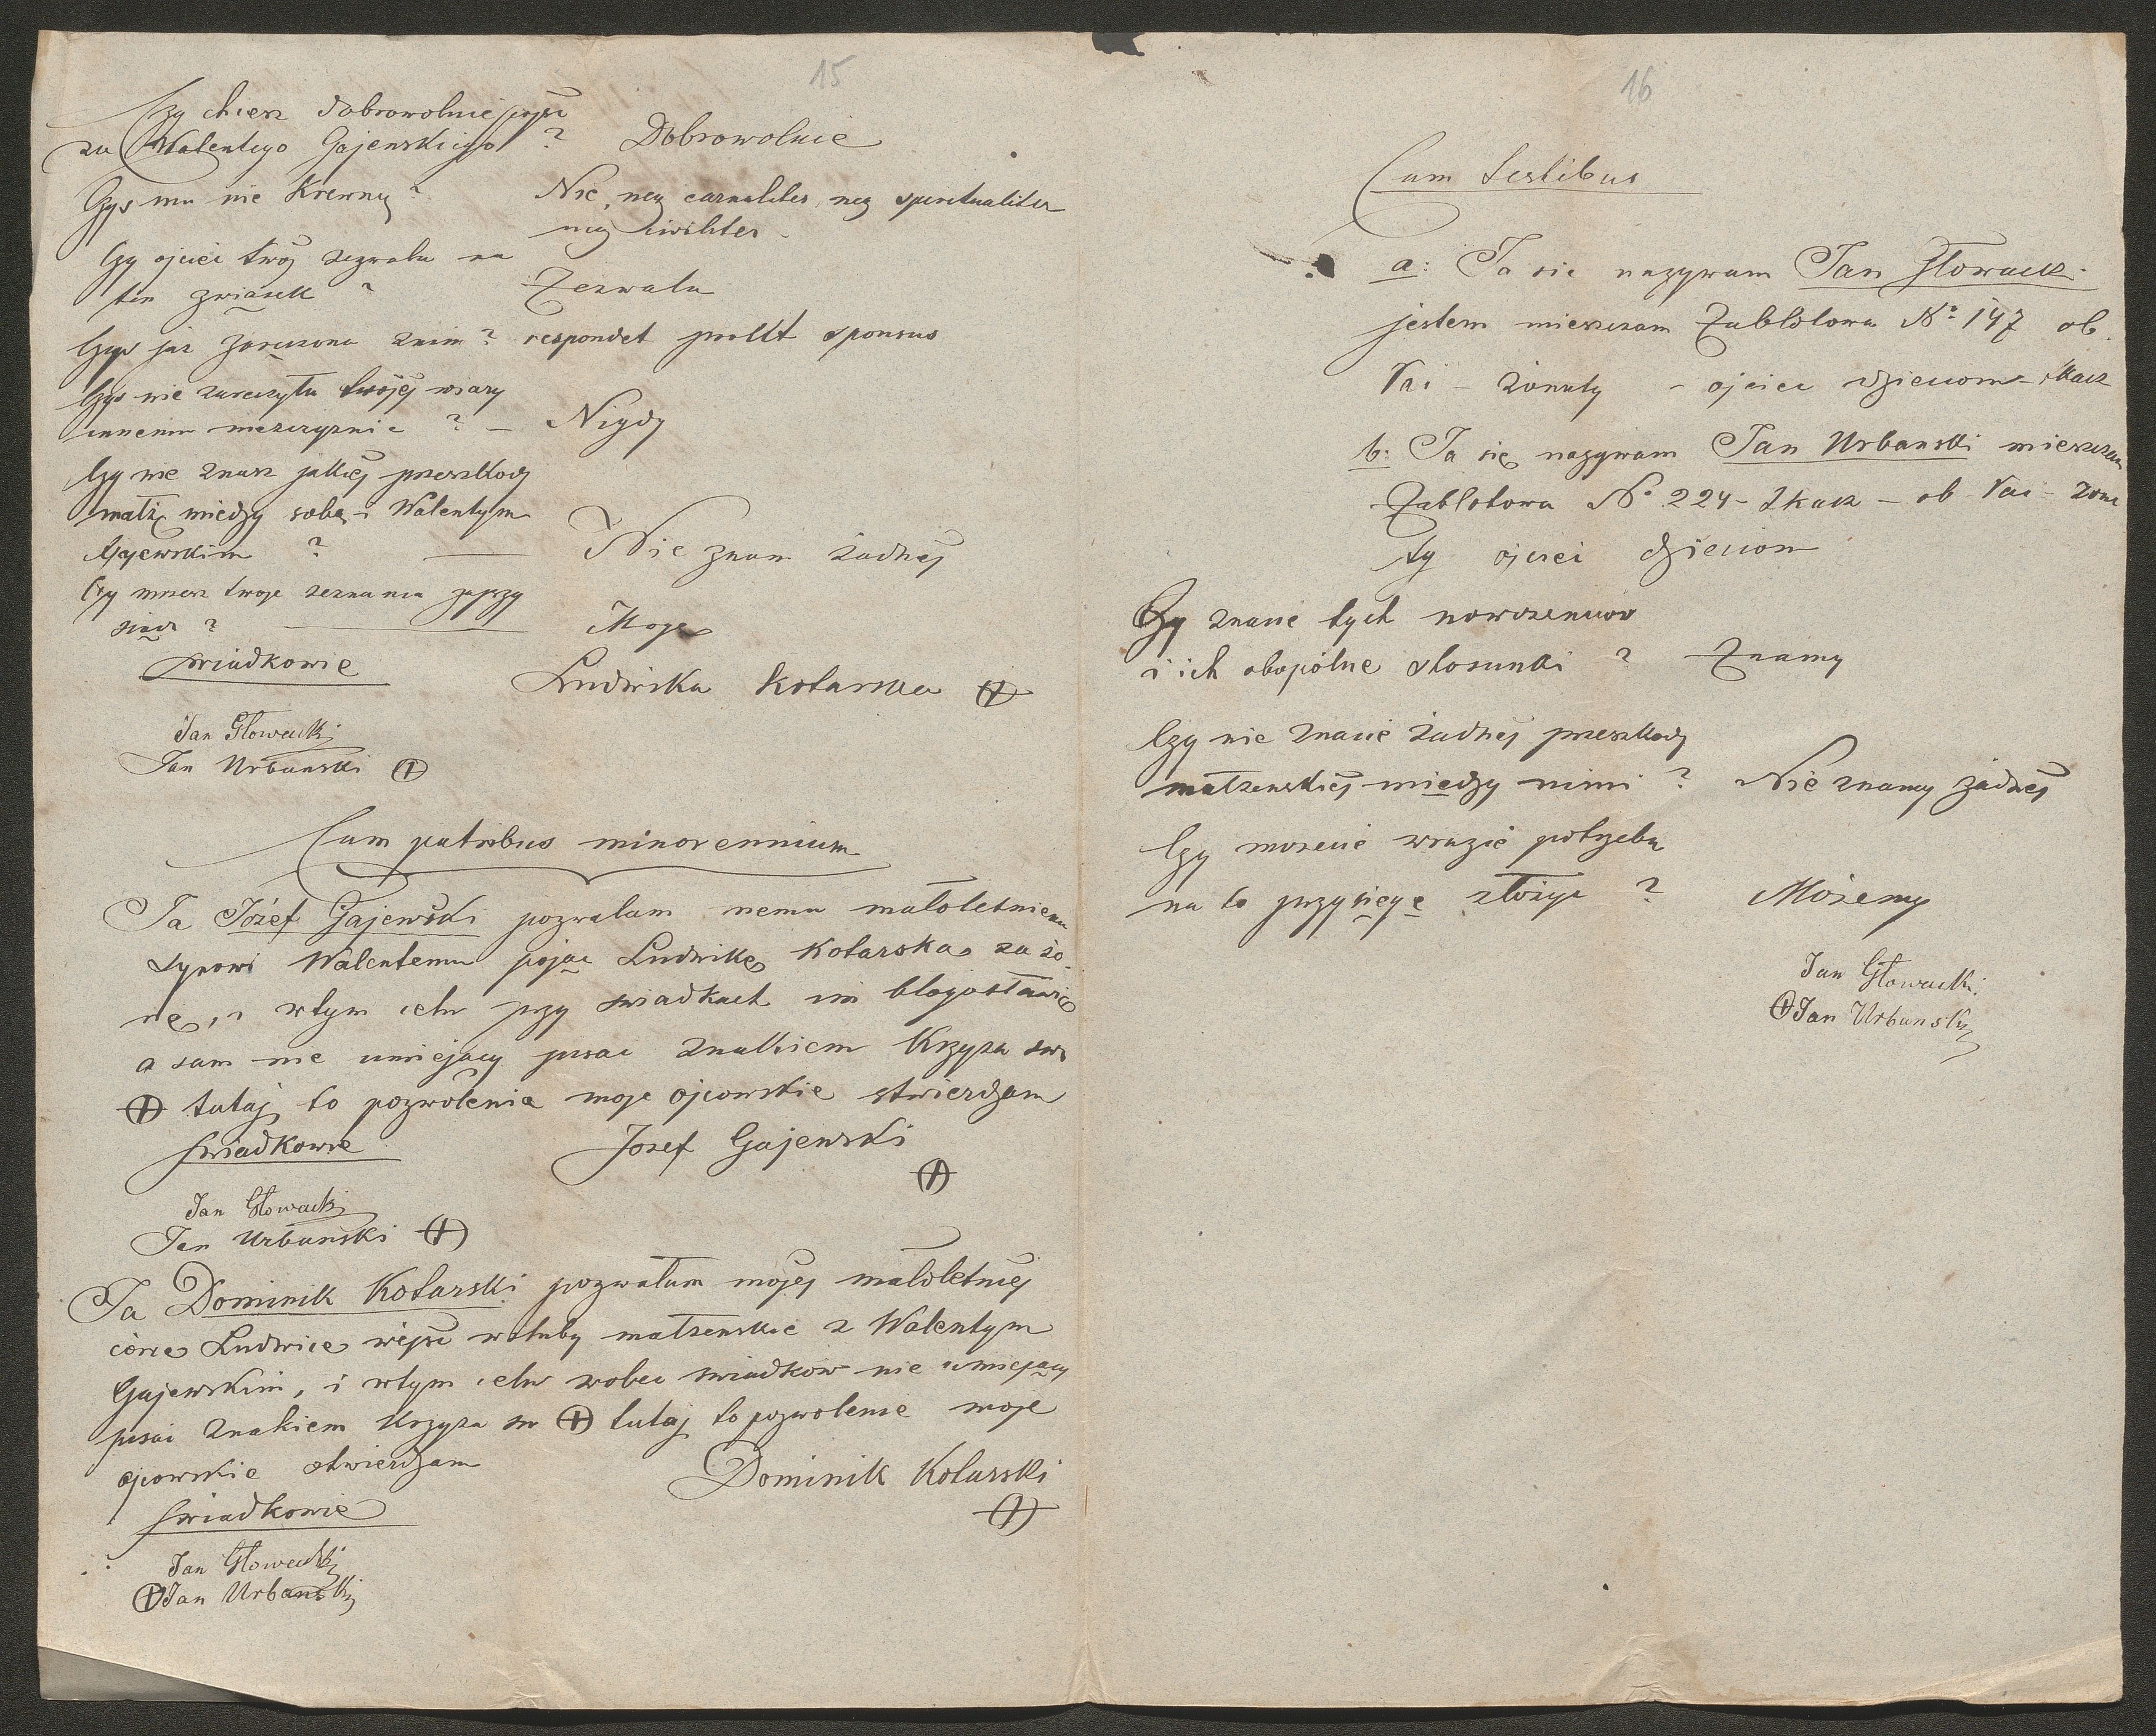 15
Czy chcesz dobrowolnie pojść
za Walentego Gajewskiego ? Dobrowolnie
Czyś mu nie Krewną ? Nie, neq carnaliter, neq spiritualiter
neq civiliter.
Czy ojciec twój zezwala na
ten związek ? Zezwala
Czyś już zaręczona z nim ? respondet prout sponsus
Czyś nie zaręczyła twojéj wiary
innemu męszczyznie ? – Nigdy
Czy nie znasz jakiéj przeszkody
małż między sobą i Walentym
Gajewskim ? — Nie znam żadnéj
Czy możesz twoje zeznania zaprzy
siądz ? — Mogę
swiadkowie
Ludwika Kotarska (+)
Jan Głowacki
Jan Urbanski (+)
Cum patribus minorennium
Ja Józef Gajewski pozwalam memu małoletniemu
synowi Walentemu pojąc Ludwikę Kotarską za żo-
nę, i w tym celu przy swiadkach im błogosławię
a sam nie umiejący pisac znakiem Krzyża sw
(+) tutaj to pozwolenie moje ojcowskie stwierdzam
Swiadkowie Josef Gajewski
(+)
Jan Głowacki
Jan Urbanski (+)
Ja Dominik Kotarski pozwalam mojéj małoletniéj
córce Ludwice wejść w sluby małżenskie z Walentym
Gajewskim, i w tym celu wobec swiadków nie umiejący
pisac znakiem Krzyża sw (+) tutaj to pozwolenie moje
ojcowskie stwierdzam Dominik Kotarski
(+)
Swiadkowie
Jan Głowacki
(+) Jan Urbanski
16
Cum testibus
a: Ja sie nazywam Jan Głowacki
jestem mieszczan Zabłotowa No 147 ob.
łaci – żonaty – ojciec dzieciom – tkacz
b: Ja się nazywam Jan Urbanski mieszczan
Zabłotowa No 224 – tkacz – ob łaci – żona
ty ojciec dzieciom
Czy znacie tych nowożencow
i ich obopólne stosunki ? Znamy
Czy nie znacie żadnéj przeszkody
małżenskiéj między nimi ? Nie znamy żadnéj
Czy możecie w razie potrzeby
na to przysięgę złożyc ? Możemy
Jan Głowacki
(+) Jan Urbanski